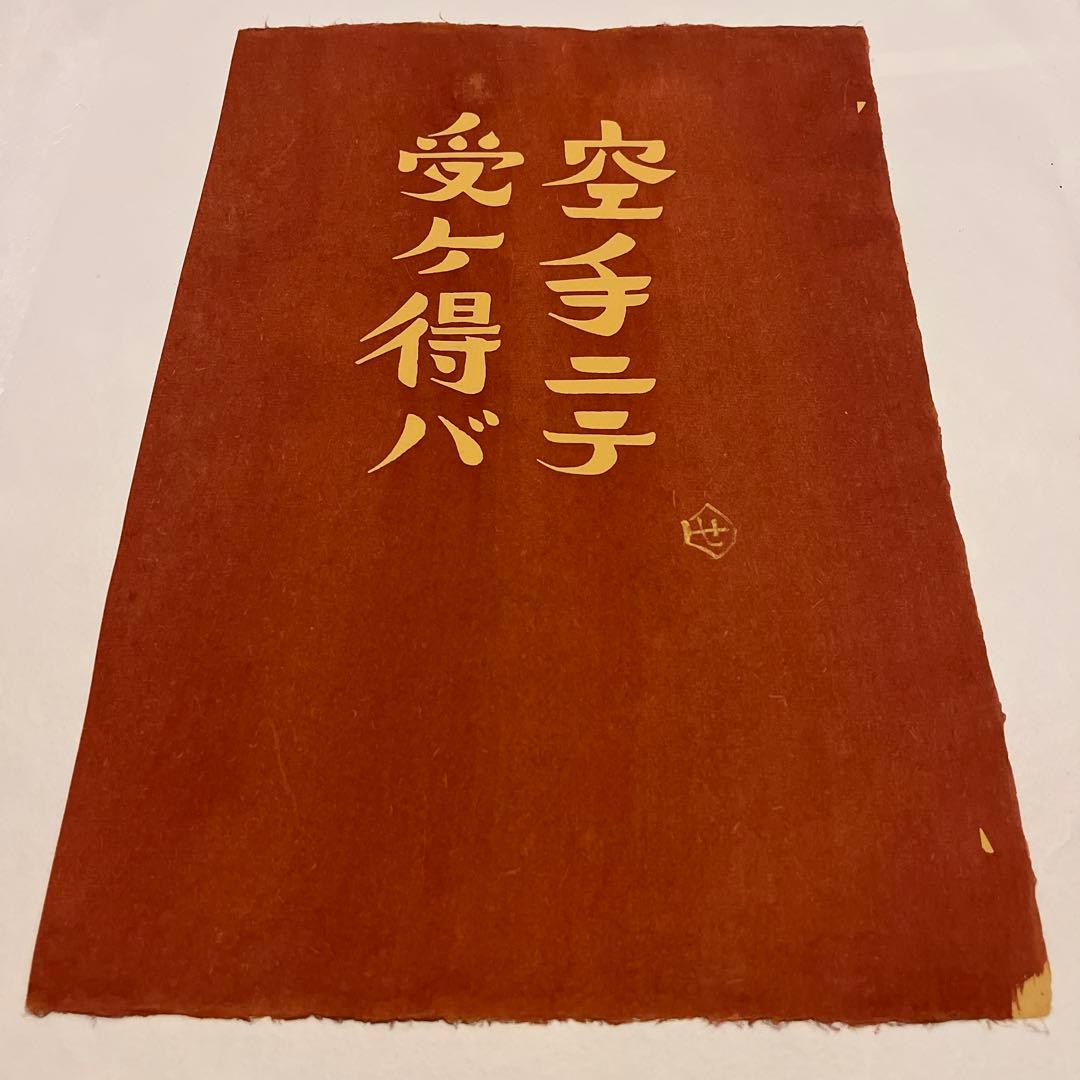 空手ニテ
受ケ得バ
せ